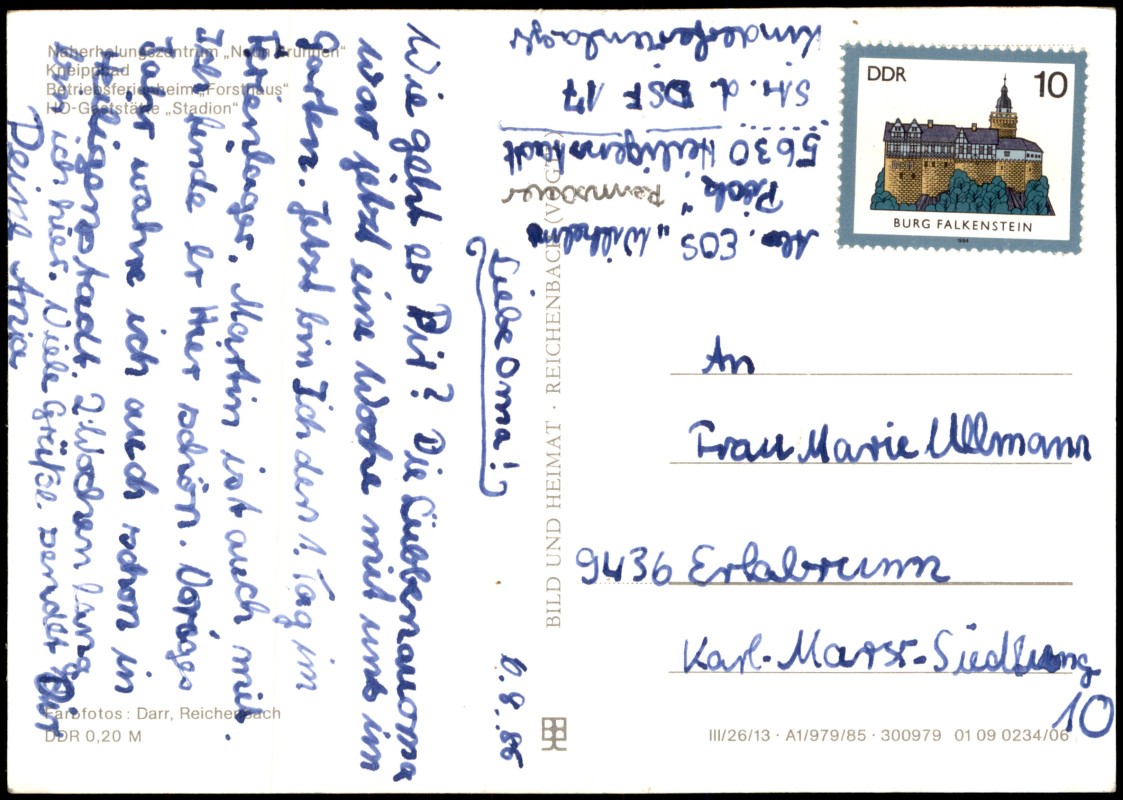 Naherholungszentrum „Neun Brunnen“
Kneippbad
Betriebsferienheim „Forsthaus“
HO-Gaststätte „Stadion“
6.8.86
Liebe Oma!
Wie geht es Dir? Die Lübbenauoma
war jetzt eine Woche mit uns im
Garten. Jetzt bin Ich den 1. Tag im
Ferienlager. Martin ist auch mit.
Ich finde er Hier schön. Voriges
Jahr wahr ich auch schon in
Heiligenstadt. 2 Wochen lang
bin ich hier. Viele Grüße sendet Dir
Deine Anja
Farbfotos: Darr, Reichenbach
DDR 0,20 M
BILD UND HEIMAT · REICHENBACH (VOGTL)
EOS „Wilhelm
Pieck“
5630 Heiligenstadt
Str. d. DSF 17
Kinderferienlager
DDR 10
BURG FALKENSTEIN
1984
An
Frau Marie Ullmann
9436 Erlabrunn
Karl-Marx-Siedlung
10
III/26/13 · A1/979/85 · 300979 01 09 0234/06